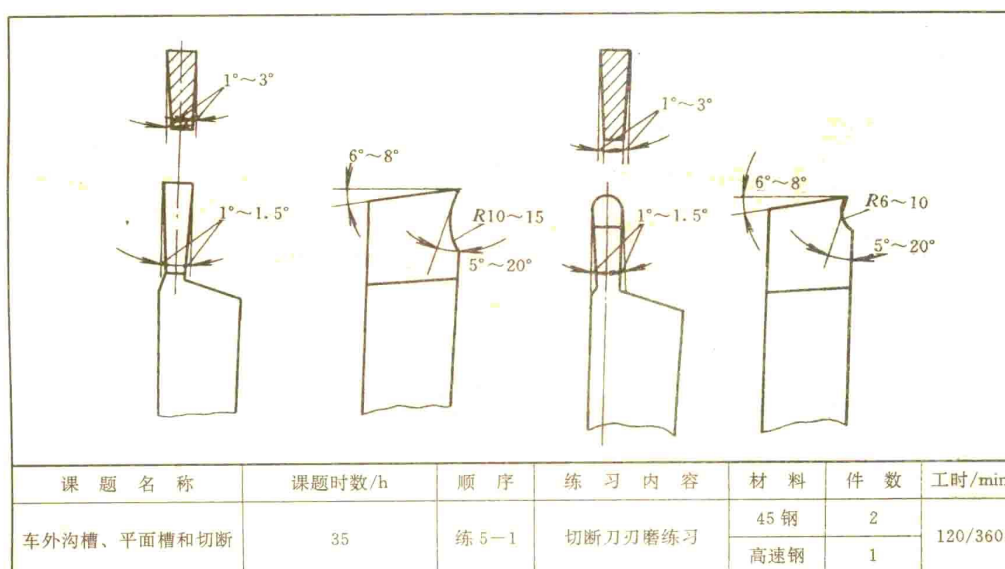 1°～3°
1°～3°
6°～8°
6°～8°
R10～15
R6～10
1°～1.5°
1°～1.5°
5°～20°
5°～20°
课题名称 课题时数/h 顺序 练习内容 材料 件数 工时/min
车外沟槽、平面槽和切断 35 练5－1 切断刀刃磨练习 45钢 2 120/360
高速钢 1